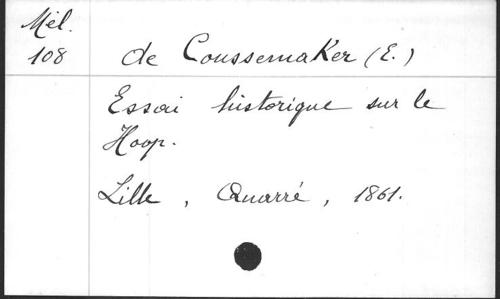 Mél.
108
de Coussemaker (E.)
Essai historique sur le
Hoop.
Lille, Quarré, 1861.